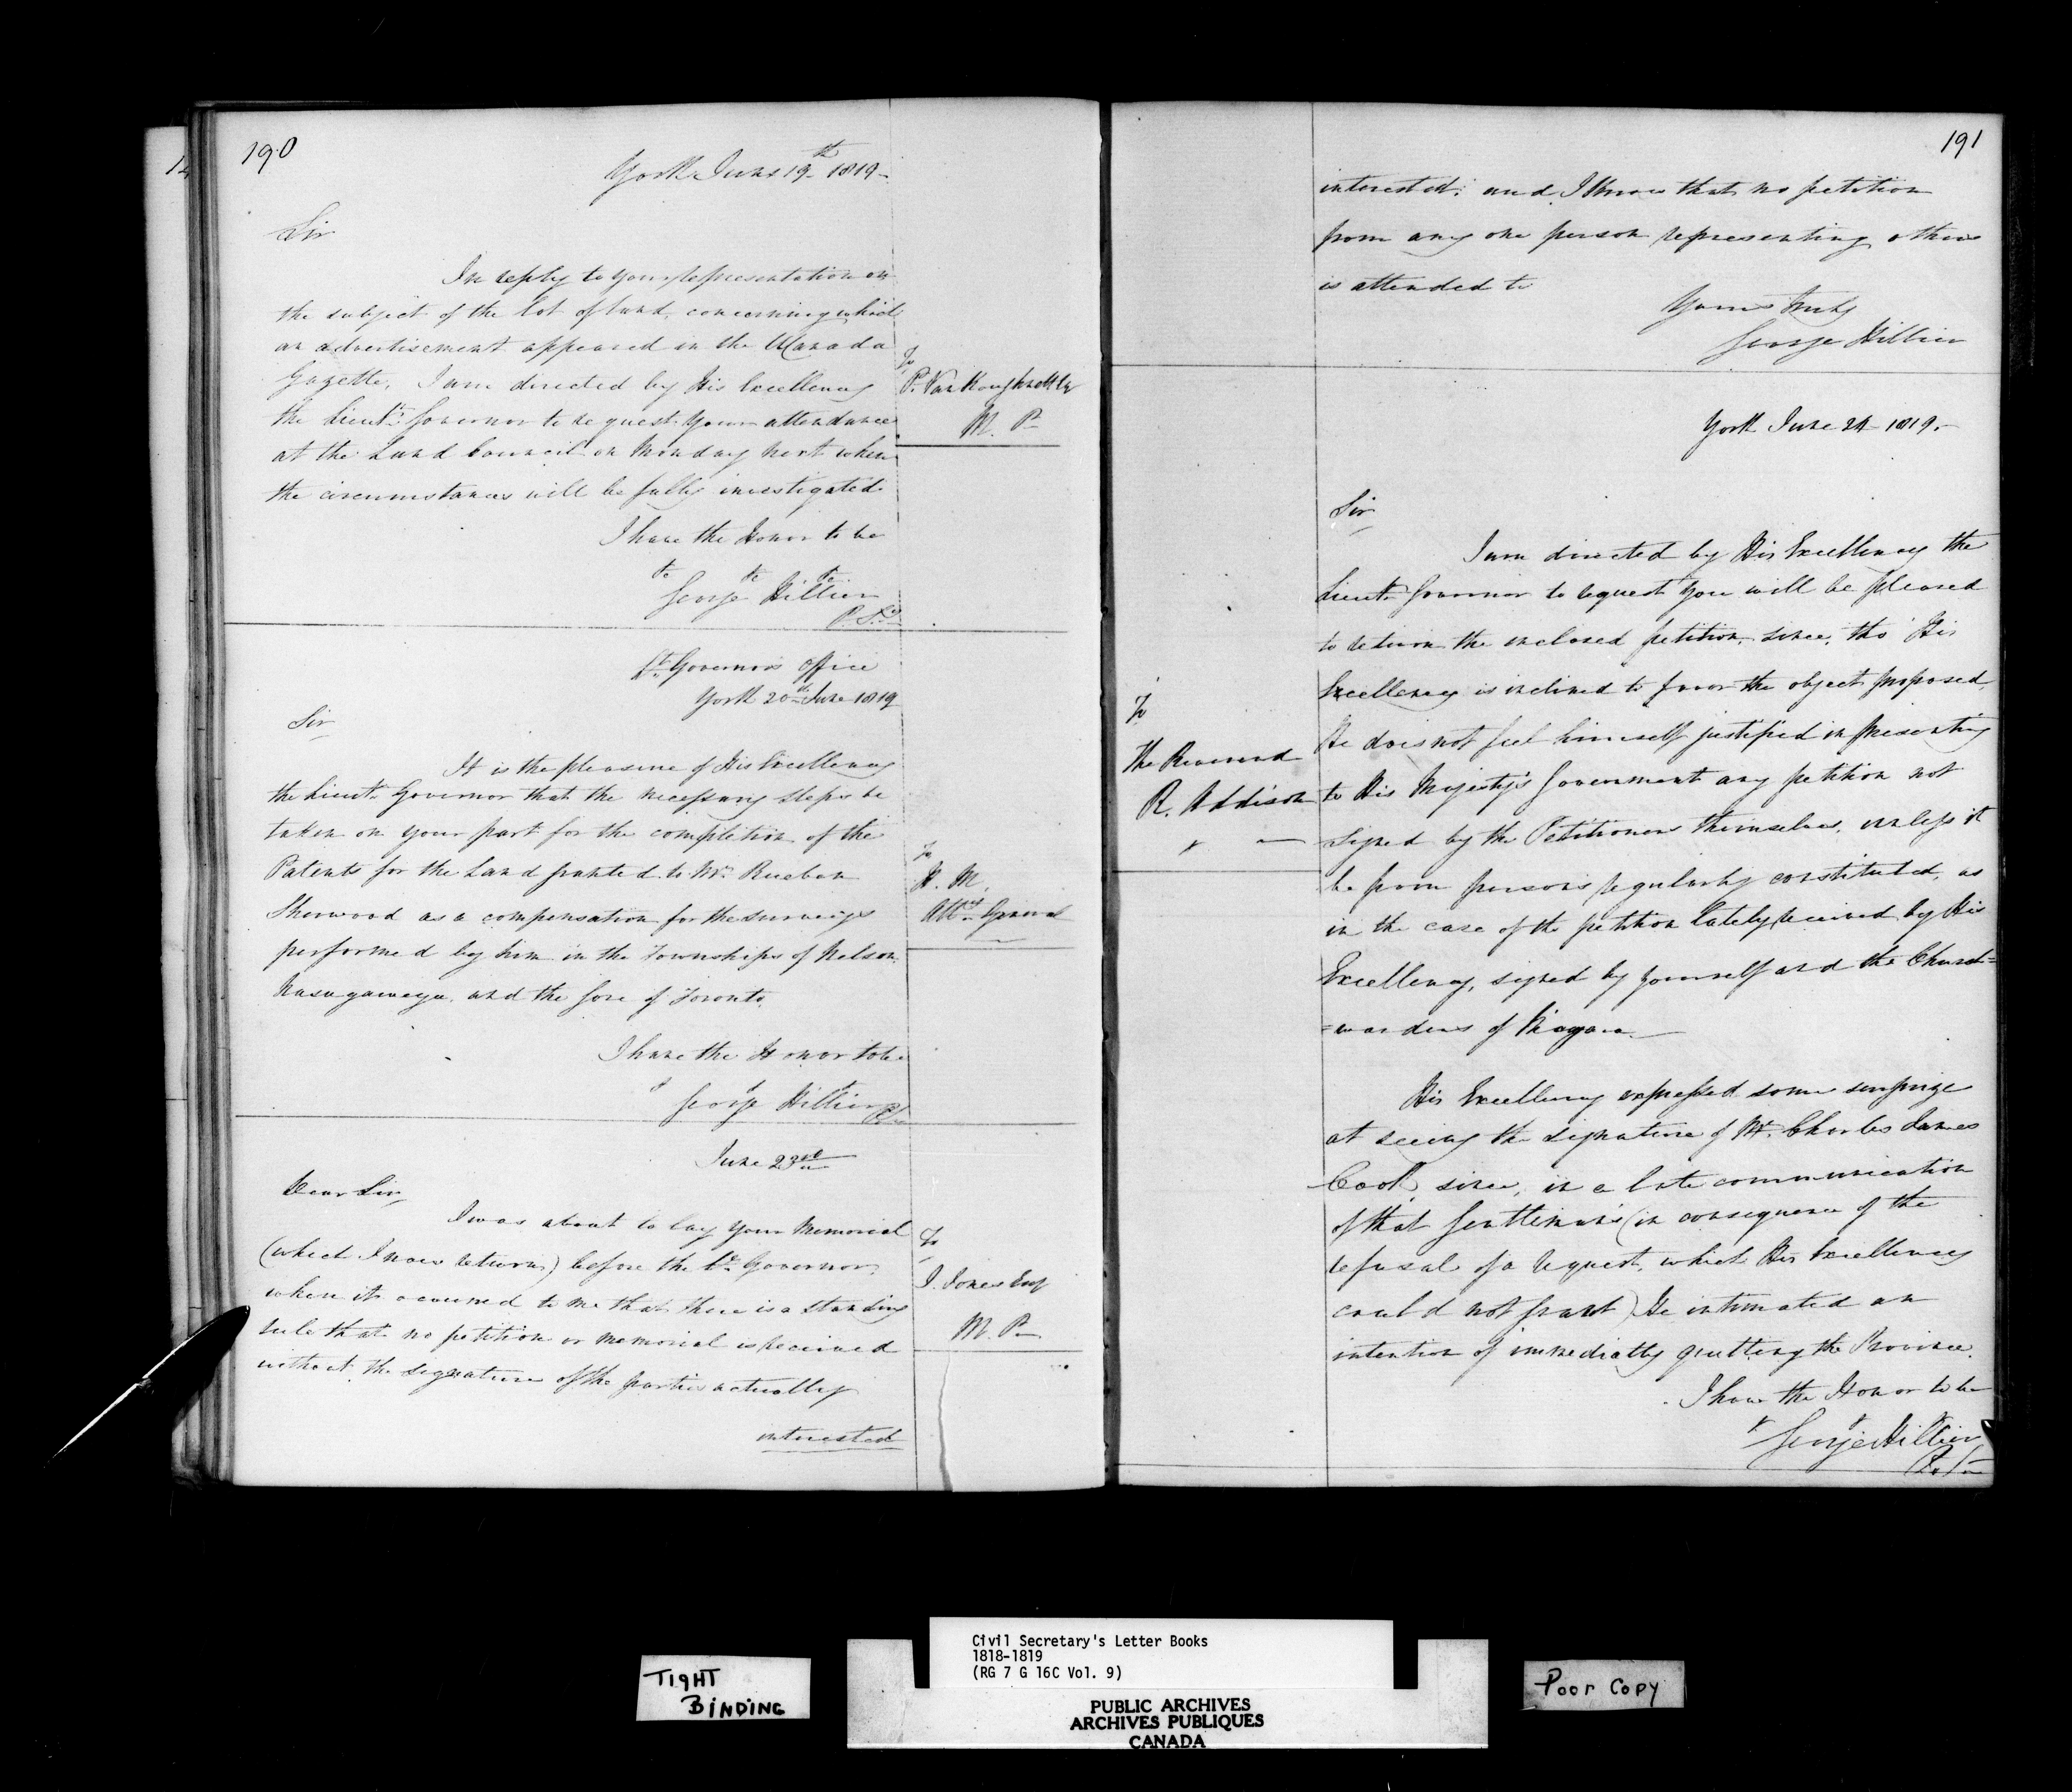 190
York June 19th 1819-
Sir
In reply to your representation on
the subject of the lot of land, concerning which
an advertisement appeared in the UCanada
Gazette, I am directed by His Excellency
the Lieutt Governor to request your attendance
at the Land Council on Monday next when
the circumstances will be fully investigated
I have the Honor to be
&c &c &c
George Hillier
P. Sy
To
P. VanKoughnett
M. P
Lt Governors Office
York 20th June 1819
Sir
It is the pleasure of His Excellency
the Lieutt Governor that the necessary steps be
taken on your part for the completion of the
Patents for the Land granted to Mr Rueben
Sherwood as a compensation for the surveys
performed by him in the Townships of Nelson
Nasagaweya, and the fore of Toronto.
I have the Honor to be
George Hillier
To
H. M.
Atty General
June 23rd
Dear Sir
I was about to lay your Memorial
(which I now return) before the Lt Governor,
when it occurred to me that there is a standing
rule that no petition or memorial is received
without the signature of the parties actually
interested
To
J. Jones Esq
M. P
191
interested: and I know that no petition
from any one person representing others
is attended to
Yours truly
George Hillier
York June 24 1819.
Sir
I am directed by His Excellency the
Lieutt Governor to request you will be pleased
to return the inclosed petition, since, tho' His
Excellency is inclined to favor the object proposed,
He does not feel himself justified in presenting
to His Majesty's Government any petition not
signed by the Petitioners themselves, unless it
be from persons regularly constituted, as
in the case of the petition lately received by His
Excellency, signed by yourself and the Church=
=wardens of Niagara.
His Excellency expressed some surprize
at seeing the signature of Mr. Charles James
Cook, since, in a late communication
of that Gentleman's (in consequence of the
refusal of a request, which His Excellency
could not grant) He intimated an
intention of immediately quitting the Province.
I have the Honor to be
George Hillier
To
The Reverend
R. Addison
TIGHT
BINDING
Civil Secretary's Letter Books
1818-1819
(RG 7 G 16C Vol. 9)
PUBLIC ARCHIVES
ARCHIVES PUBLIQUES
CANADA
Poor Copy